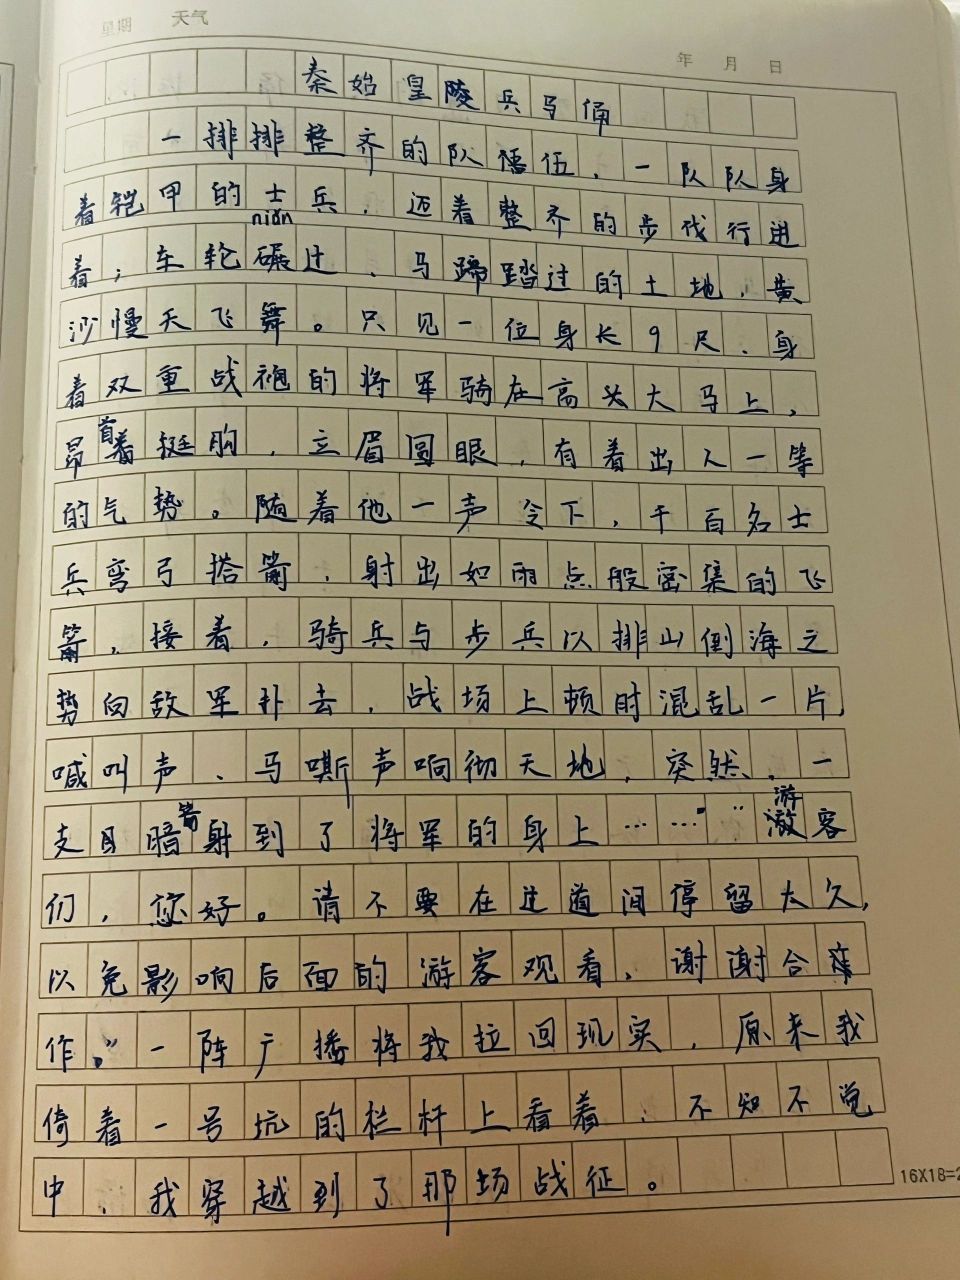 星期 天气
年 月 日
秦始皇陵兵马俑
一排排整齐的队伍,一队队身
着铠甲的士兵,迈着整齐的步伐行进
niǎn
着;车轮碾过、马蹄踏过的土地,黄
沙慢天飞舞。只见一位身长9尺、身
着双重战袍的将军骑在高头大马上,
昂首挺胸,立眉圆眼,有着出人一等
的气势。随着他一声令下,千百名士
兵弯弓搭箭,射出如雨点般密集的飞
箭,接着,骑兵与步兵以排山倒海之
势向敌军扑去,战场上顿时混乱一片,
喊叫声、马嘶声响彻天地,突然,一
支暗箭射到了将军的身上……"游客
们,您好。请不要在过道间停留太久,
以免影响后面的游客观看,谢谢合
作。"一阵广播将我拉回现实,原来我
倚着一号坑的栏杆上看着,不知不觉
中,我穿越到了那场战征。
16X18=2